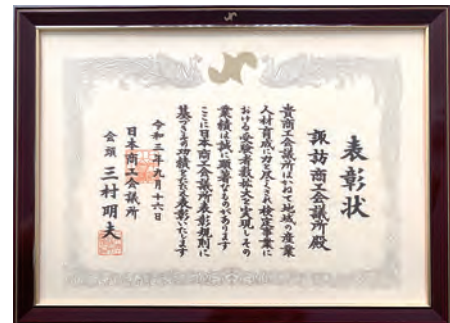 表彰状
諏訪商工会議所殿
貴商工会議所はかねて地域の産業
人材育成に力を尽くされ検定事業に
おける受験者数拡大を実現しその
業績は誠に顕著なものがあります
ここに日本商工会議所表彰規則に
基づきその功績をたたえ表彰いたします
令和三年九月十六日
日本商工会議所
会頭 三村明夫